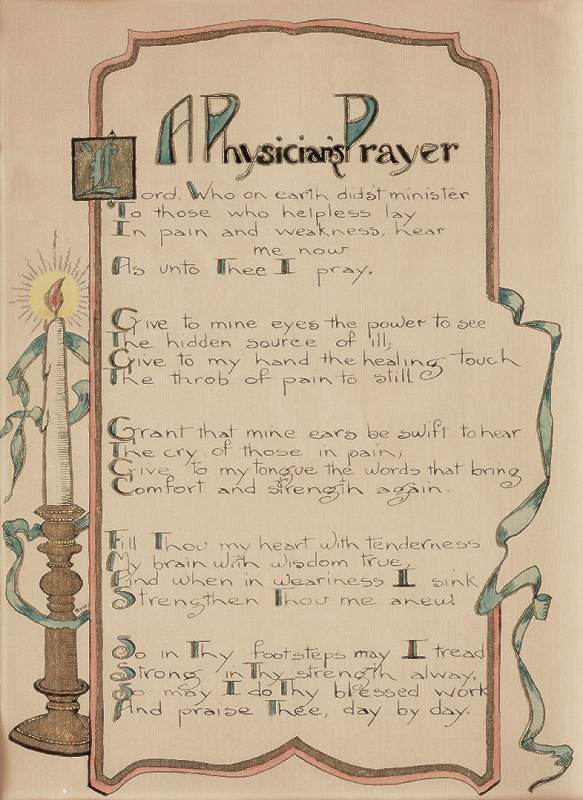 A Physician's Prayer
Lord, Who on earth didst minister
To those who helpless lay
In pain and weakness, hear
me now
As unto Thee I pray.
Give to mine eyes the power to see
The hidden source of ill,
Give to my hand the healing touch
The throb of pain to still.
Grant that mine ears be swift to hear
The cry of those in pain,
Give to my tongue the words that bring
Comfort and strength again.
Fill Thou my heart with tenderness
My brain with wisdom true,
And when in weariness I sink
Strengthen Thou me anew.
So in Thy footsteps may I tread
Strong in Thy strength alway,
So may I do Thy blessed work
And praise Thee, day by day.